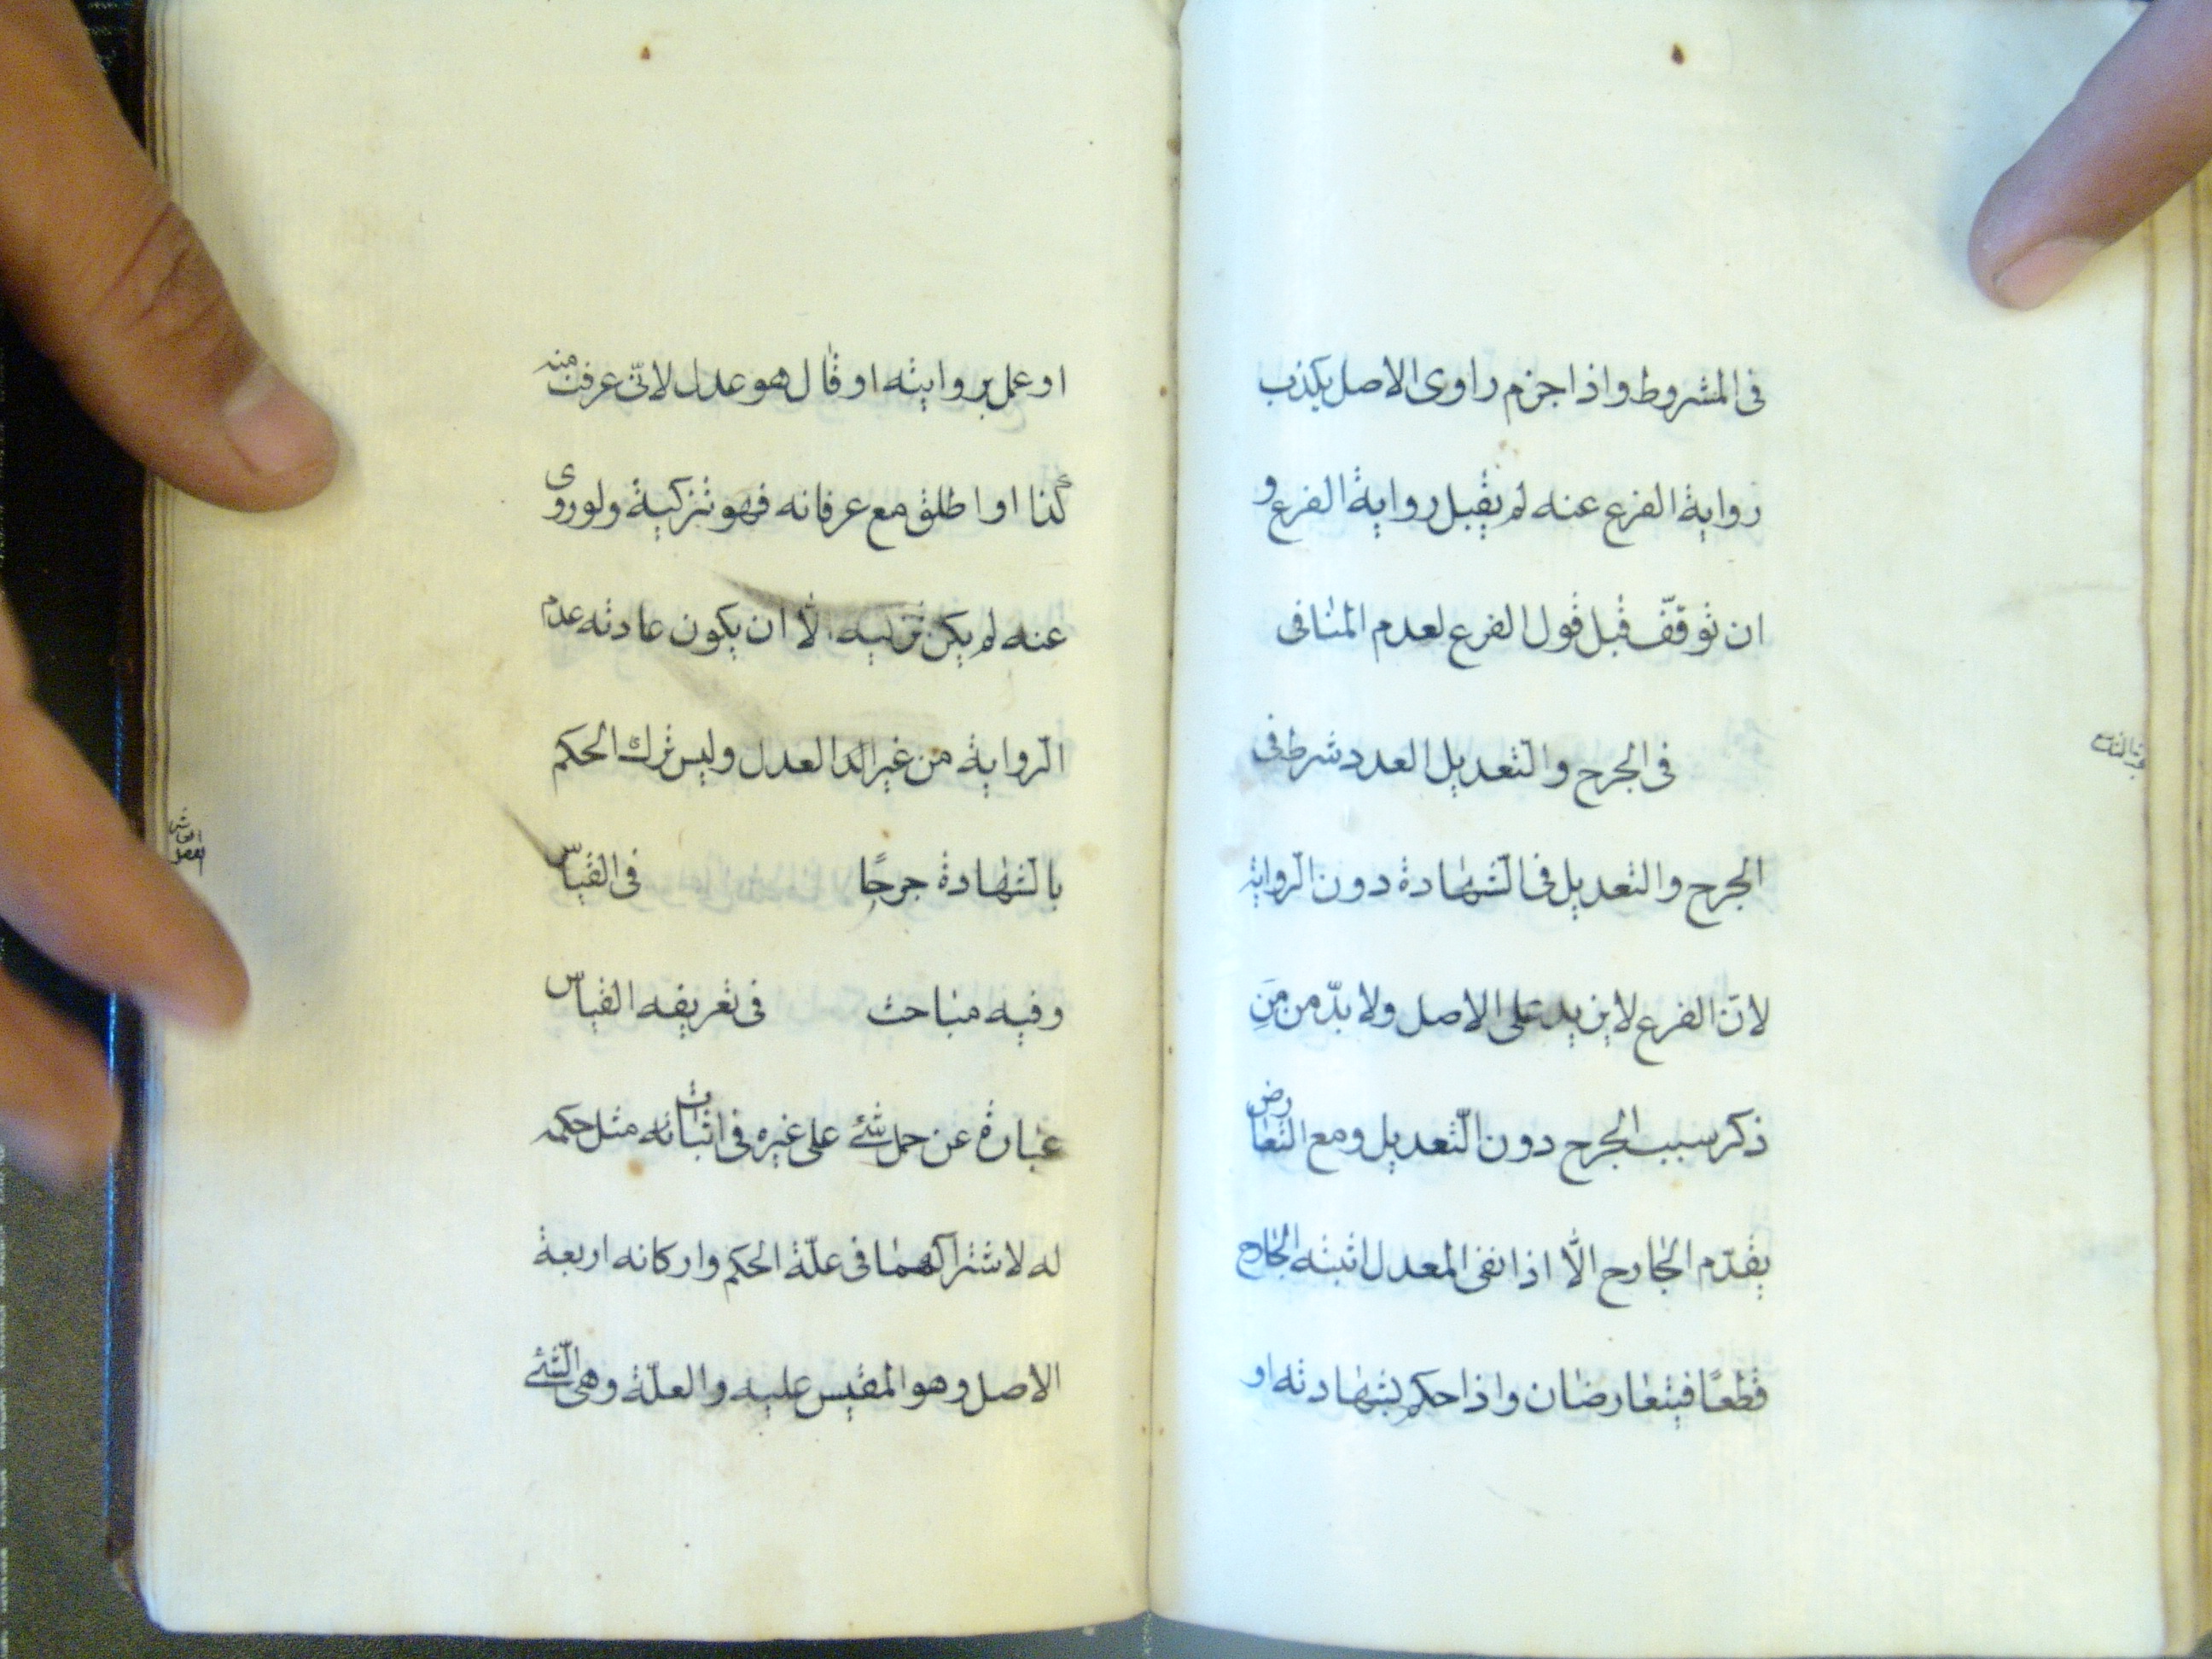 فى المشروط واذا جزم راوى الاصل بكذب
رواية الفرع عنه لم يقبل رواية الفرع و
ان توقّف قبل قول الفرع لعدم المنافى
فى الجرح والتّعديل العدد شرط فى
الجرح والتعديل فى الشّهادة دون الرّواية
لانّ الفرع لا يزيد على الاصل ولا بدّ من مَنِ
ذكر سبب الجرح دون التّعديل ومع التّعارض
يقدّم الجارح الّا اذا نفى المعدل اثبته الجارح
قطعًا فيتعارضان واذا حكم بشهادته او
او عمل بروايته او قال هو عدل لانّى عرفت منه
كذا او اطلق مع عرفانه فهو تزكية ولو روى
عنه لم يكن تزكيه الّا ان يكون عادته عدم
الرّواية من غير العدل وليس ترك الحكم
بالشّهادة جرحًا فى القياس
وفيه مباحث فى تعريفه القياس
عبارة عن حمل شئ على غيره فى اثبات مثل حكمه
له لاشتراكهما فى علّة الحكم واركانه اربعة
الاصل وهو المقيس عليه والعلّة وهى الشّئ